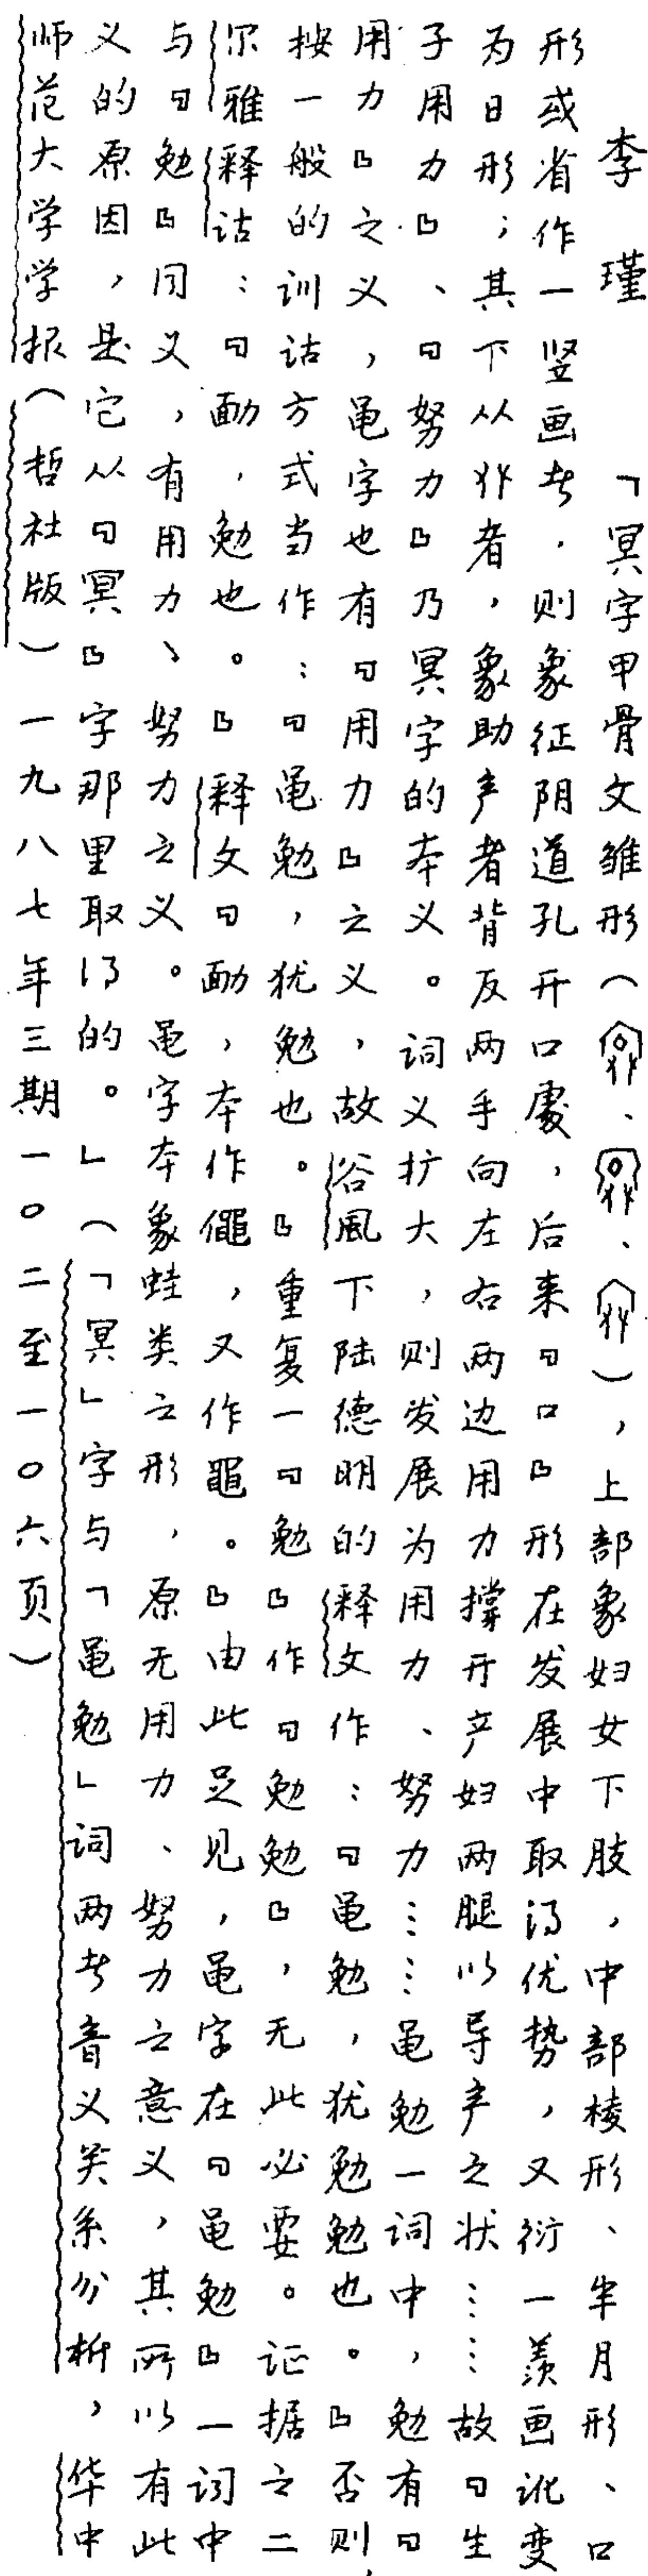 李瑾 「冥字甲骨文雏形(、、),上部象妇女下肢,中部棱形、半月形、口
形或省作一竖画者,则象征阴道孔开口處,后来『口』形在发展中取得优势,又衍一羡画讹变
为日形;其下从者,象助产者背反两手向左右两边用力撑开产妇两腿以导产之状……故『生
子用力』、『努力』乃冥字的本义。词义扩大,则发展为用力、努力……黾勉一词中,勉有『
用力』之义,黾字也有『用力』之义,故谷風下陆德明的释文作:『黾勉,犹勉勉也。』否则
按一般的训诂方式当作:『黾勉,犹勉也。』重复一『勉』作『勉勉』,无此必要。证据之二
尔雅释诂:『勔,勉也。』释文『勔,本作僶,又作黽。』由此足见,黾字在『黾勉』一词中
与『勉』同义,有用力、努力之义。黾字本象蛙类之形,原无用力、努力之意义,其所以有此
义的原因,是它从『冥』字那里取得的。」(「冥」字与「黾勉」词两者音义关系分析,华中
师范大学学报(哲社版)一九八七年三期一〇二至一〇六页)